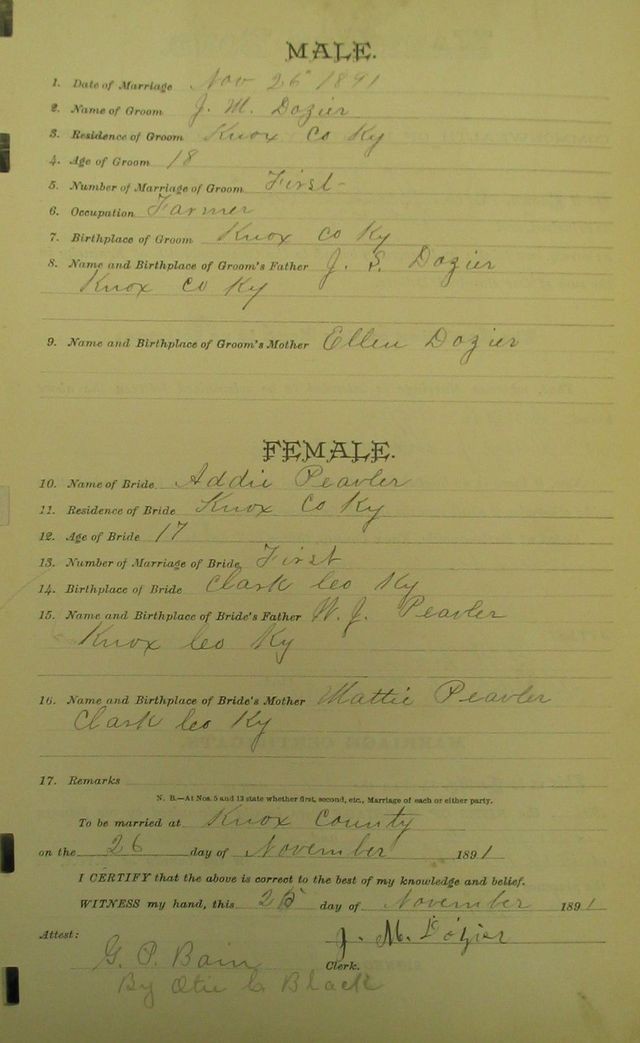 MALE.
1. Date of Marriage Nov 26" 1891
2. Name of Groom J. M. Dozier
3. Residence of Groom Knox Co Ky
4. Age of Groom 18
5. Number of Marriage of Groom First
6. Occupation Farmer
7. Birthplace of Groom Knox Co Ky
8. Name and Birthplace of Groom's Father J. S. Dozier
Knox Co Ky
9. Name and Birthplace of Groom's Mother Ellen Dozier
FEMALE.
10. Name of Bride Addie Peavler
11. Residence of Bride Knox Co Ky
12. Age of Bride 17
13. Number of Marriage of Bride First
14. Birthplace of Bride Clark Co Ky
15. Name and Birthplace of Bride's Father W. J. Peavler
Knox Co Ky
16. Name and Birthplace of Bride's Mother Mattie Peavler
Clark Co Ky
17. Remarks
N. B.—At Nos. 5 and 13 state whether first, second, etc., Marriage of each or either party.
To be married at Knox County
on the 26 day of November 1891
I CERTIFY that the above is correct to the best of my knowledge and belief.
WITNESS my hand, this day of November 1891
Attest: J. M. Dozier
G. P. Bain Clerk.
By C. Black